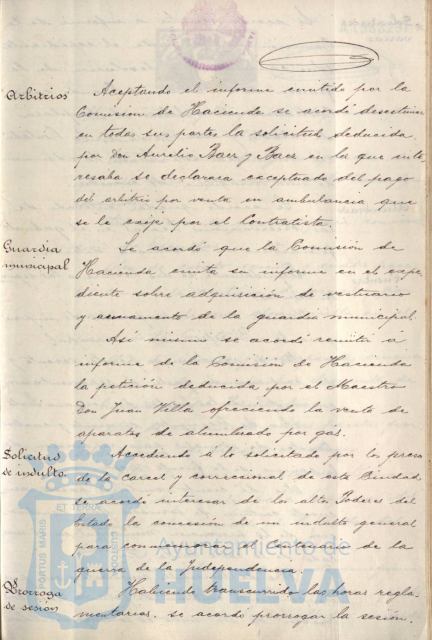 Arbitrios
Aceptando el informe emitido por la
Comision de Hacienda se acordó desestimar
en todas sus partes la solicitud deducida
por Don Aurelio Baer y Baer en la que inte-
resaba se declarara exceptuado del pago
del arbitrio por venta en ambulancia que
se le exije por el Contratista.
Guardia
municipal
Se acordó que la Comisión de
Hacienda emita su informe en el expe
diente sobre adquisición de vestuario
y armamento de la guardia municipal.
Asi mismo se acordó remitir á
informe de la Comision de Hacienda
la petición deducida por el Maestro
Don Juan Villa ofreciendo la venta de
aparatos de alumbrado por gas.
Solicitud
de indulto
Accediendo á lo solicitado por los presos
de la carcel y correccional de esta Ciudad
se acordó interesar de los altos Poderes del
Estado la concesión de un indulto general
para conmemorar el Centenario de la
guerra de la Independencia.
Prorroga
de sesión
Habiendo transcurrido las horas regla-
mentarias, se acordó prorrogar la sesión.
PORTUS MARIS
ET TERRAE
CUSTODIA
Ayuntamiento de
HUELVA